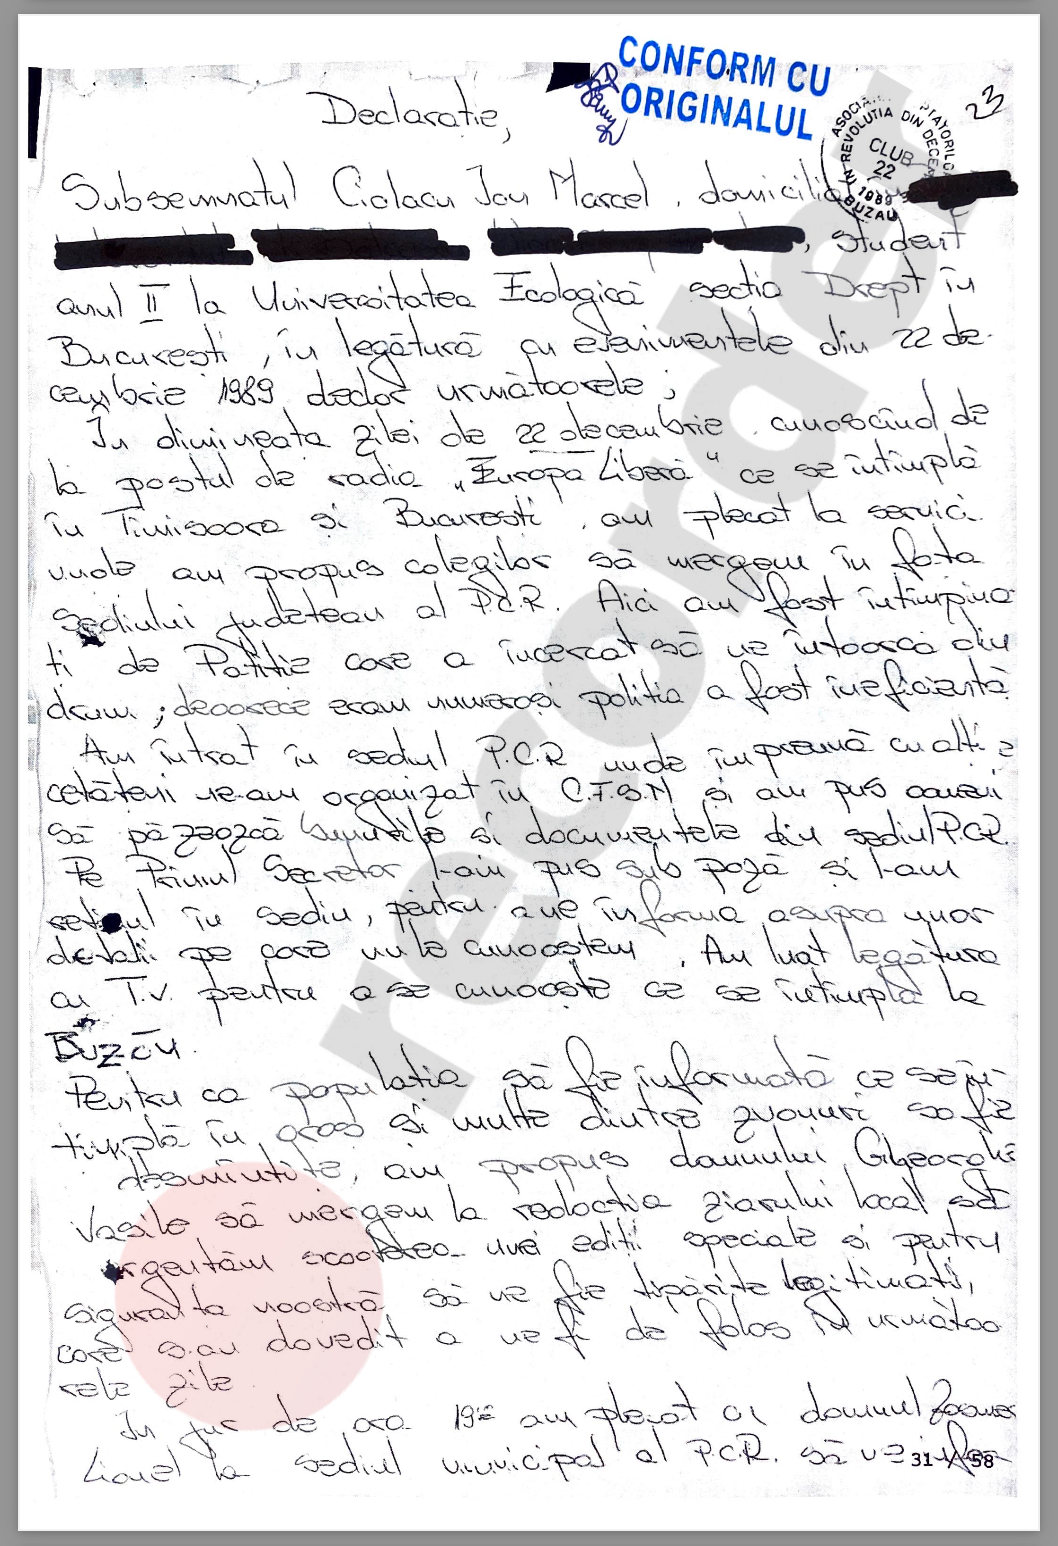 CONFORM CU
ORIGINALUL
23
Declarație,
ASOCIA... ...TATORILOR
IN REVOLUTIA DIN DECEM
CLUB
22
1989
BUZAU
Subsemnatul Ciolacu Ion Marcel, domicilia
, student
anul II la Universitatea Ecologică sectia Drept în
Bucuresti, în legătură cu evenimentele din 22 de-
cembrie 1989 declar următoarele;
În dimineata zilei de 22 decembrie, cunoscînd de
la postul de radio „Europa Liberă" ce se întîmplă
în Timisoara și București, am plecat la servici.
unde am propus colegilor să mergem în fata
sediului judetean al P.C.R. Aici am fost întîmpina-
ti de Politie care a încercat să ne întoarcă din
drum; deoarece eram numeroși politia a fost ineficientă
Am întrat în sediul P.C.R unde împreună cu alti
cetăteni ne-am organizat în C.F.S.N și am pus oameni
să păzească bunurile si documentele din sediul P.C.R.
Pe Primul Secretar l-am pus sub pază și l-am
retinut în sediu, pentru a ne informa asupra unor
detalii pe care nu le cunoastem. Am luat legătura
cu T.V. pentru a se cunoaște ce se întîmplă la
Buzău.
Pentru ca populatia să fie informată ce se în-
tîmplă în oras și multe dintre zvonuri sa fie
desmintite, am propus domnului Gheorghe
Vasile să mergem la redactia ziarului local să
urgentăm scoaterea unei editii speciale si pentru
siguranta noastră să ne fie tipărite legitimatii,
care s-au dovedit a ne fi de folos în următoa
rele zile.
În jur de ora 19 am plecat cu domnul
Lionel la sediul municipal al P.C.R. să ne
31 / 58
recorder